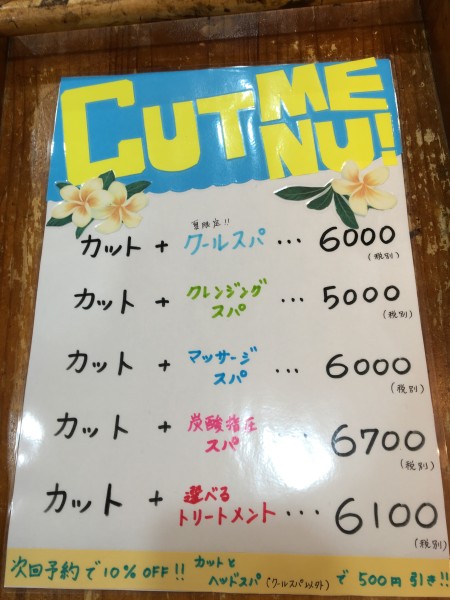 CUT MENU!
夏限定!!
カット + クールスパ … 6000
(税別)
カット + クレンジング
スパ … 5000
(税別)
カット + マッサージ
スパ … 6000
(税別)
カット + 炭酸指圧
スパ … 6700
(税別)
カット + 選べる
トリートメント … 6100
(税別)
次回予約で10%OFF!! カットと
ヘッドスパ(クールスパ以外)で500円引き!!